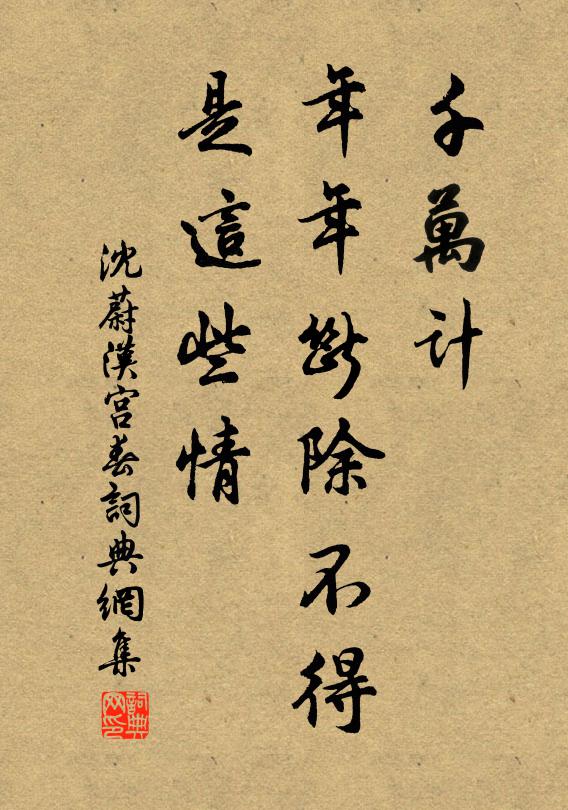 千萬計
年年斷除不得
是這些情
沈蔚漢宮春詞典網集
詞典網印